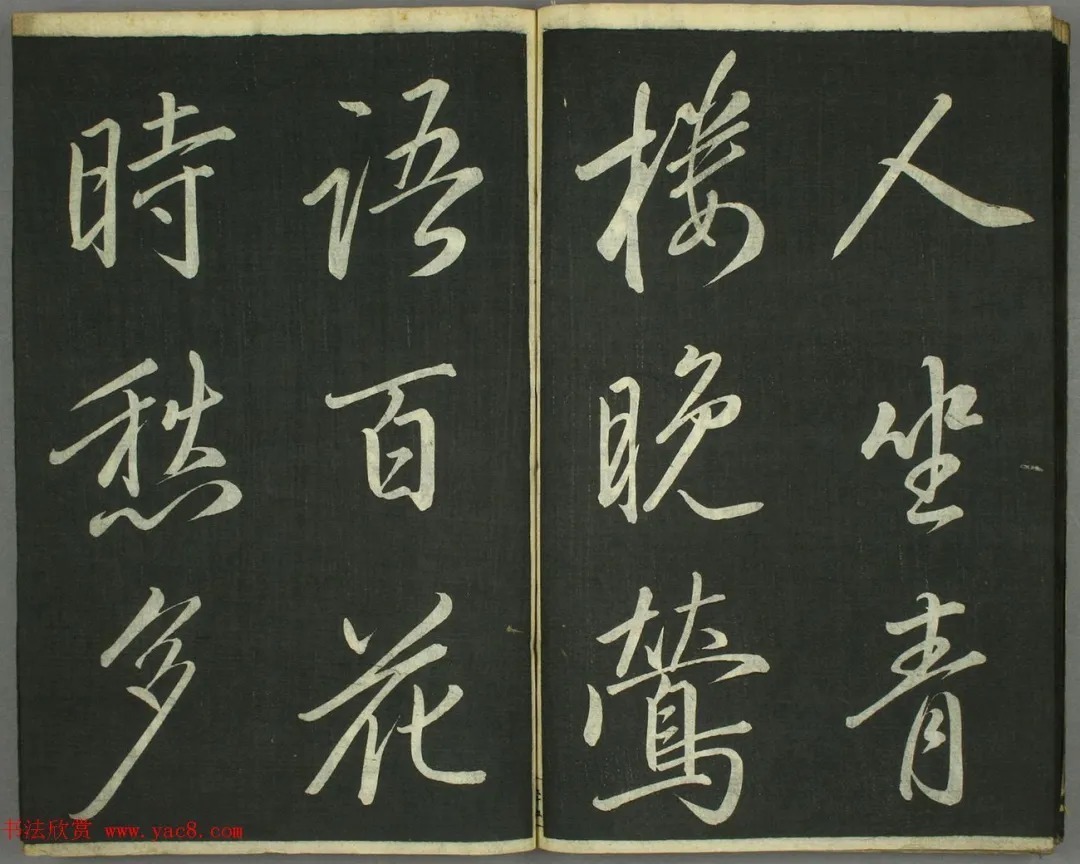 人坐青
楼晚莺
語百花
時愁多
书法欣赏 www.yac8.com